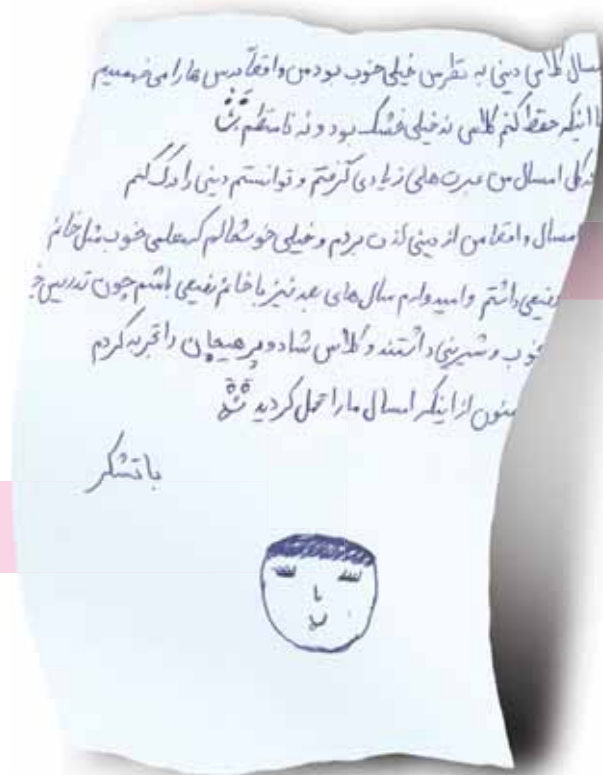 امسال کلاس دینی به نظر من خیلی خوب بود من واقعاً درس ها را می فهمیدم
با اینکه حفظ کنم کلاس نه خیلی خشک بود و نه نامنظم
در کل امسال من عبرت های زیادی گرفتم و توانستم دینی را درک کنم
امسال واقعا من از دینی لذت بردم و خیلی خوشحالم که معلمی خوب مثل خانم
رفیعی داشتم و امیدوارم سال های بعد نیز با خانم رفیعی باشم چون تدریس
خوب و شیرینی داشتند و کلاس شاد و پر هیجان را تجربه کردم
ممنون از اینکه امسال ما را تحمل کردید
با تشکر